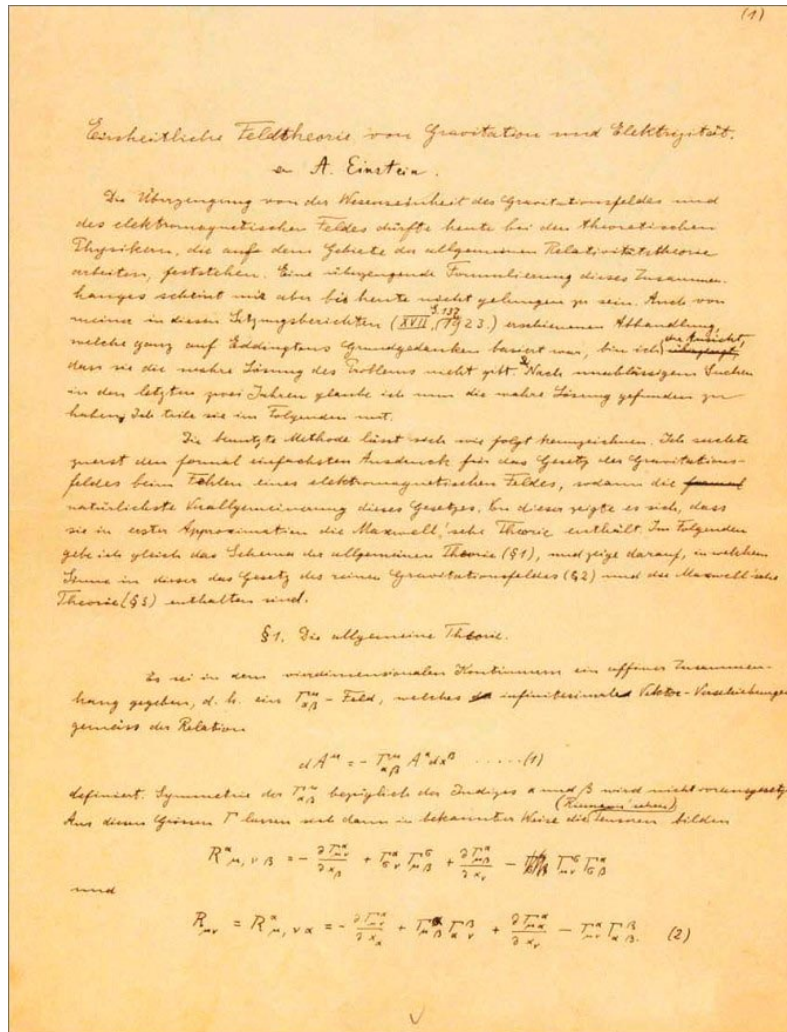 (1)
Einheitliche Feldtheorie von Gravitation und Elektrizität.
A. Einstein.
Die Überzeugung von der Wesenseinheit des Gravitationsfeldes und
des elektromagnetischen Feldes dürfte heute bei den theoretischen
Physikern, die auf dem Gebiete der allgemeinen Relativitätstheorie
arbeiten, feststehen. Eine überzeugende Formulierung dieses Zusammen-
hanges scheint mir aber bis heute nicht gelungen zu sein. Auch von
S. 137
meiner in diesen Sitzungsberichten (XVII, 1923.) erschienenen Abhandlung,
der Ansicht,
welche ganz auf Eddingtons Grundgedanken basiert war, bin ich überzeugt,
dass sie die wahre Lösung des Problems nicht gibt. Nach unablässigem Suchen
in den letzten zwei Jahren glaube ich nun die wahre Lösung gefunden zu
haben. Ich teile sie im Folgenden mit.
Die benutzte Methode lässt sich wie folgt kennzeichnen. Ich suchte
zuerst den formal einfachsten Ausdruck für das Gesetz des Gravitations-
feldes beim Fehlen eines elektromagnetischen Feldes, sodann die formal
natürlichste Verallgemeinerung dieses Gesetzes. Von dieser zeigte es sich, dass
sie in erster Approximation die Maxwell'sche Theorie enthält. Im Folgenden
gebe ich gleich das Schema der allgemeinen Theorie (§1), und zeige darauf, in welchem
Sinne in dieser das Gesetz des reinen Gravitationsfeldes (§2) und die Maxwell'sche
Theorie (§3) enthalten sind.
§1. Die allgemeine Theorie.
Es sei in dem vierdimensionalen Kontinuum ein affiner Zusammen-
hang gegeben, d. h. ein Γ^μ_αβ - Feld, welches infinitesimale Vektor-Verschiebungen
gemäss der Relation
dA^μ = − Γ^μ_αβ A^α dx^β .....(1)
definiert. Symmetrie der Γ^μ_αβ bezüglich der Indizes α und β wird nicht vorausgesetzt.
(Riemann'schen)
Aus diesen Grössen Γ lassen sich dann in bekannter Weise die Tensoren bilden
R^α_μ,νβ = − ∂Γ^α_μν/∂x_β + Γ^α_σν Γ^σ_μβ + ∂Γ^α_μβ/∂x_ν − Γ^σ_μν Γ^α_σβ
und
R_μν = R^α_μ,να = − ∂Γ^α_μν/∂x_α + Γ^α_μβ Γ^β_αν + ∂Γ^α_μα/∂x_ν − Γ^α_μν Γ^β_αβ. (2)